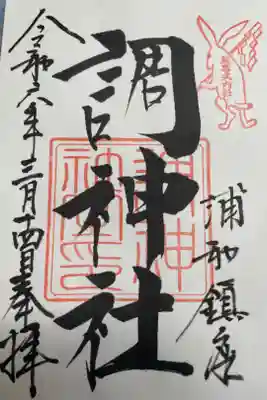 浦和鎮座
調神社
令和六年三月十四日奉拝